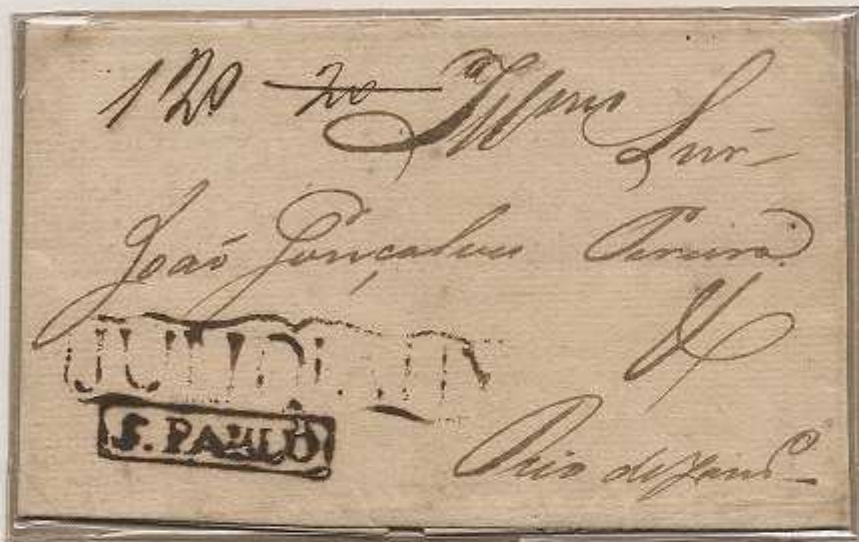 120 20 Illmo Snr
João Gonçalves Pereira
JUNDIAHY
S. PAULO
Rio de Janro